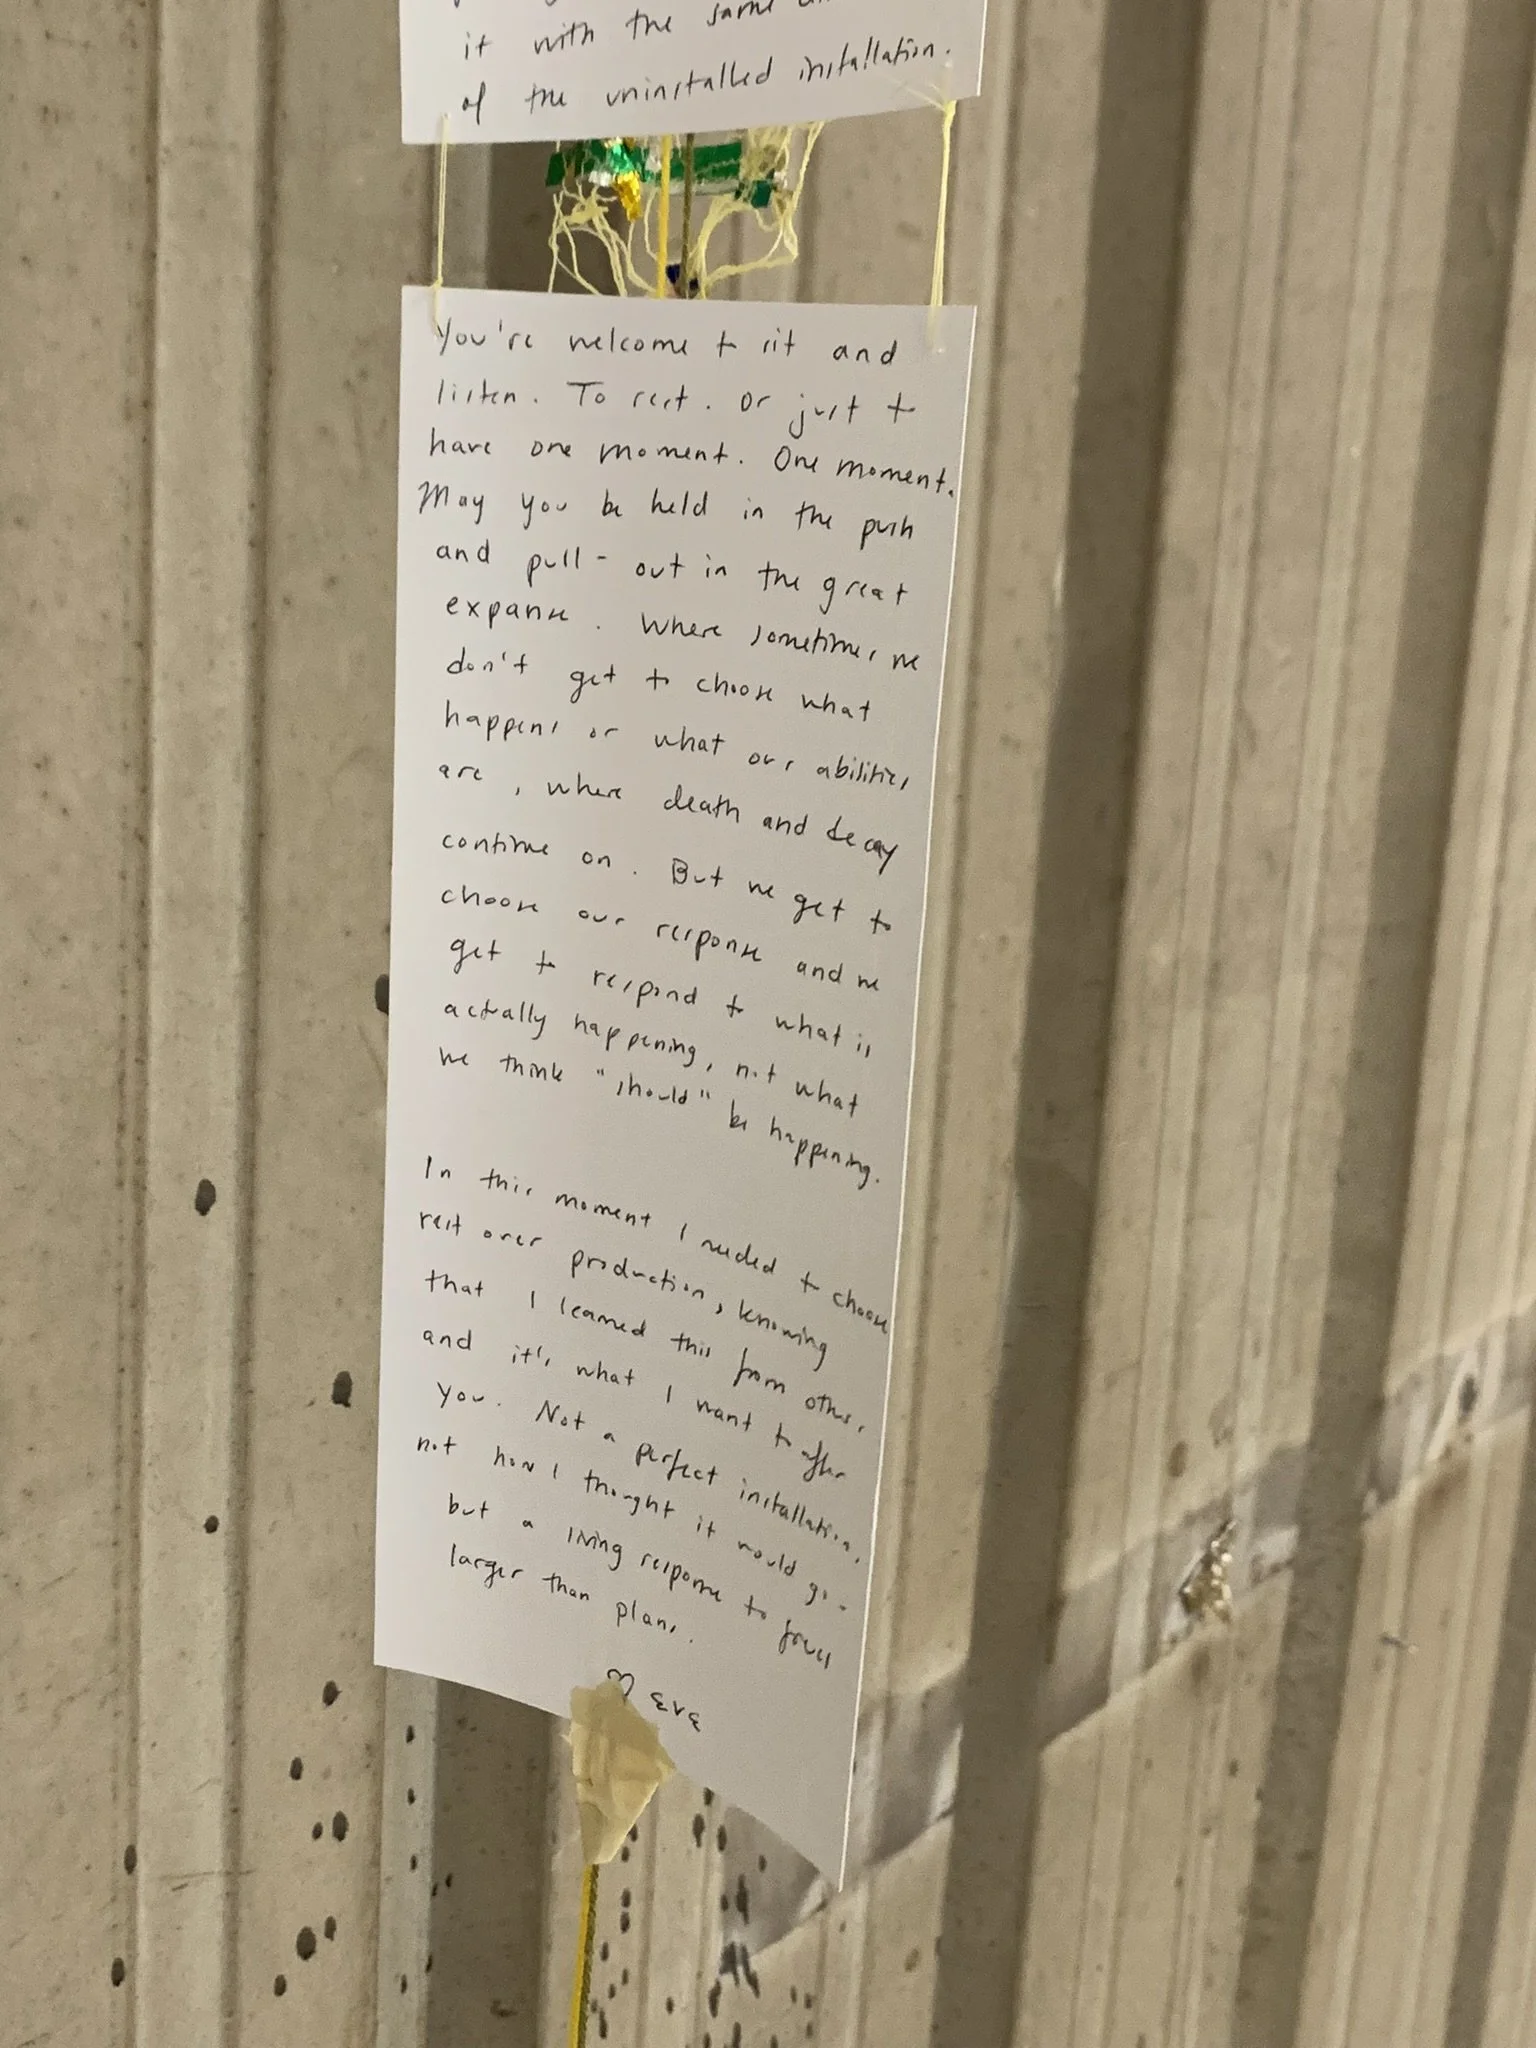 it with the same
of the uninstalled installation.
You're welcome to sit and
listen. To rest. Or just to
have one moment. One moment.
May you be held in the push
and pull - out in the great
expanse. Where sometimes we
don't get to choose what
happens or what our abilities
are, where death and decay
continue on. But we get to
choose our response and we
get to respond to what is
actually happening, not what
we think "should" be happening.
In this moment I needed to choose
rest over production, knowing
that I learned this from others
and it's what I want to offer
you. Not a perfect installation,
not how I thought it would go -
but a living response to forces
larger than plans.
♡ EVE